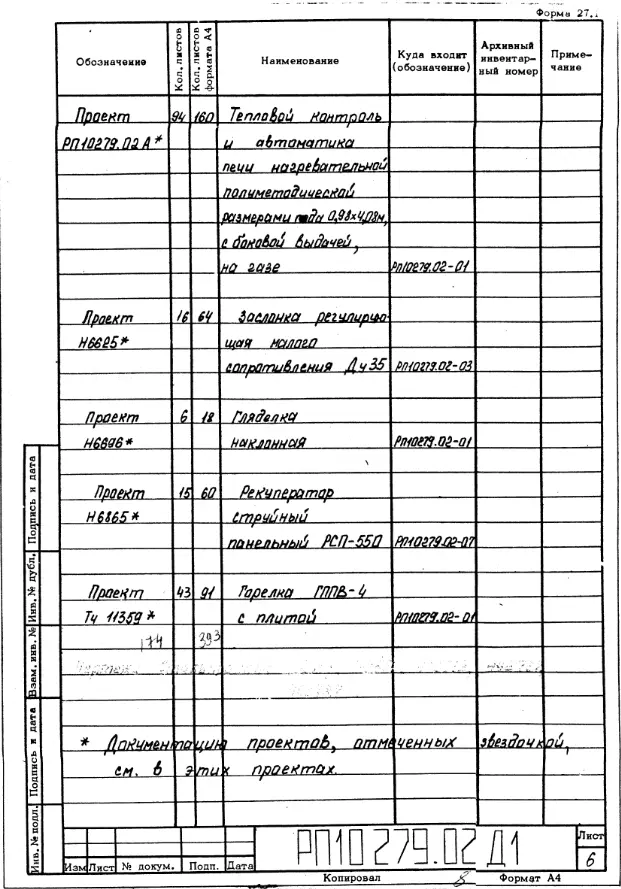 Форма 27.1
Обозначение Кол. листов Кол. листов формата А4 Наименование Куда входит (обозначение) Архивный инвентарный номер Примечание
Проект 94 160 Тепловой контроль
РП10279.02А* и автоматика
печи нагревательной
полуметодической
размерами пода 0,98х4,08м,
с боковой выдачей,
на газе РП10279.02-01
Проект 16 64 Заслонка регулирую-
Н6625* щая малого
сопротивления Ду35 РП10279.02-03
Проект 6 18 Гляделка
Н6896* наклонная РП10279.02-01
Проект 15 60 Рекуператор
Н6865* струйный
панельный РСП-550 РП10279.02-07
Проект 43 91 Горелка ГППВ-4
Тч 11359* с плитой РП10279.02-01
174 393
* Документацию проектов, отмеченных звездочкой,
см. в этих проектах.
Инв. № подл. Подпись и дата Взам. инв. № Инв. № дубл. Подпись и дата
РП10279.02 Д1
Лист
6
Изм Лист № докум. Подп. Дата
Копировал Формат А4